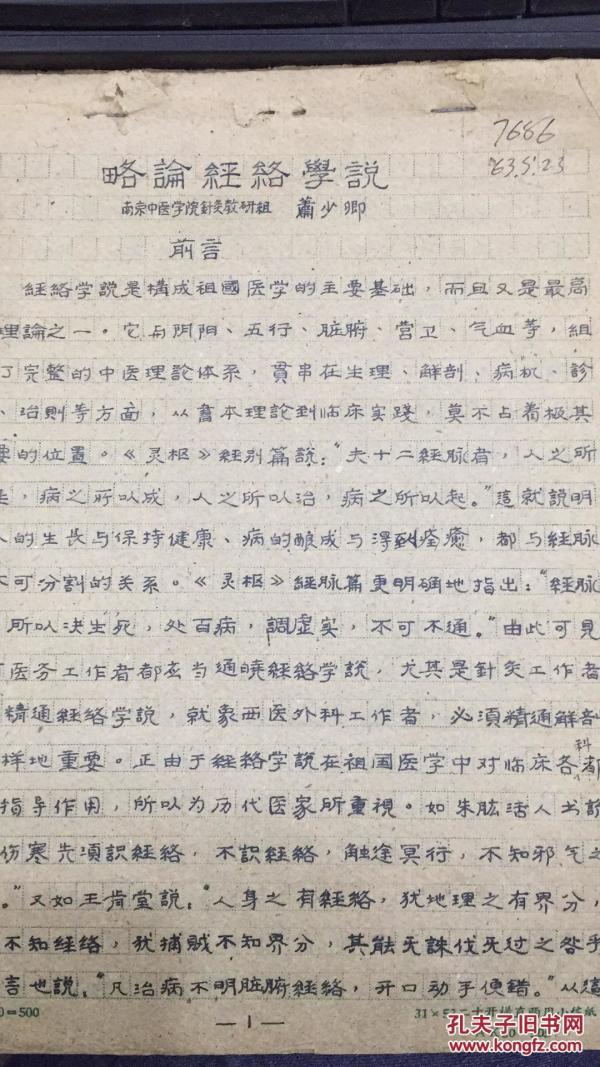 7686
63.5.23
略論経絡學説
南京中医学院針灸教研組 蕭少卿
前言
経絡学説是構成祖國医学的主要基础，而且又是最高
理論之一。它与阴阳、五行、脏腑、营卫、气血等，組
了完整的中医理論体系，貫串在生理、解剖、病机、診
、治則等方面，从書本理論到临床实践，莫不占着极其
要的位置。《灵枢》経别篇説："夫十二経脉者，人之所
生，病之所以成，人之所以治，病之所以起。"這就説明
人的生長与保持健康、病的酿成与得到痊癒，都与経脉
不可分割的关系。《灵枢》経脉篇更明确地指出："経脉
所以决生死，处百病，調虚实，不可不通。"由此可見
医务工作者都应当通曉経絡学説，尤其是針灸工作者
精通経絡学説，就象西医外科工作者，必須精通解剖
样地重要。正由于経絡学説在祖国医学中对临床各科都
指导作用，所以为历代医家所重視。如朱肱活人書説
伤寒先須識経絡，不識経絡，触途冥行，不知邪气之
。"又如王肯堂説："人身之有経絡，犹地理之有界分，
不知経絡，犹捕贼不知界分，其能无誅伐无过之咎乎
言也説："凡治病不明脏腑経絡，开口动手便錯。"从這
0=500
—1—
31×
孔夫子旧书网
www.kongfz.com